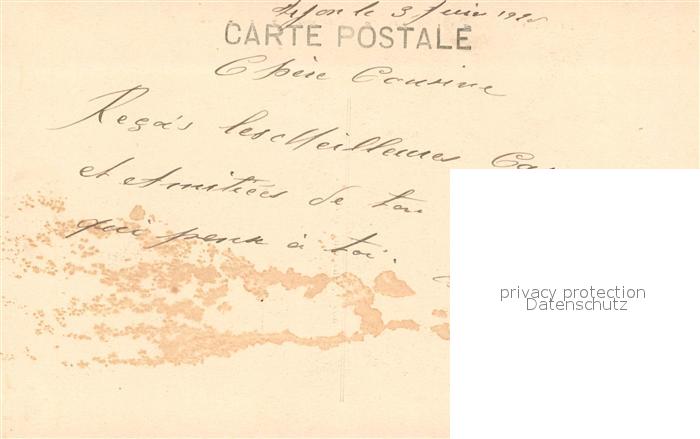 le 3 Juin
CARTE POSTALE
Chère Cousine
Reçois les Meilleures
et Amitiées de ton
qui pense à toi.
privacy protection
Datenschutz